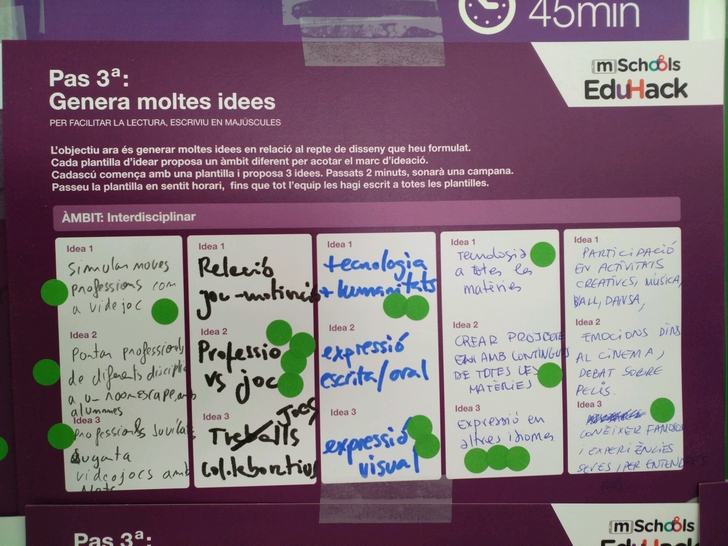 45min
Pas 3ª:
Genera moltes idees
PER FACILITAR LA LECTURA, ESCRIVIU EN MAJÚSCULES
mSchools
EduHack
L'objectiu ara és generar moltes idees en relació al repte de disseny que heu formulat.
Cada plantilla d'idear proposa un àmbit diferent per acotar el marc d'ideació.
Cadascú comença amb una plantilla i proposa 3 idees. Passats 2 minuts, sonarà una campana.
Passeu la plantilla en sentit horari, fins que tot l'equip les hagi escrit a totes les plantilles.
ÀMBIT: Interdisciplinar
Idea 1
Simular noves
professions com
a videjoc
Idea 2
Portar professionals
de diferents
a un roomescape amb
alumnes
Idea 3
professionals
jugant a
videojocs amb
Idea 1
Relació
joc-motivació
Idea 2
Professio
vs joc
Idea 3
Jocs
Treballs
col.laboratius
Idea 1
tecnologia
+ humanitats
Idea 2
expressió
escrita/oral
Idea 3
expressió
visual
Idea 1
Tecnologia
a totes les
matèries
Idea 2
CREAR PROJECTE
AMB CONTINGUTS
DE TOTES LES
MATÈRIES
Idea 3
Expressió en
altres idiomes
Idea 1
PARTICIPACIÓ
EN ACTIVITATS
CREATIVES, MÚSICA,
BALL, DANSA,
Idea 2
EMOCIONS DINS
AL CINEMA,
DEBAT SOBRE
PELIS.
Idea 3
CONÈIXER
I EXPERIÈNCIES
SEVES PER ENTENDRE
Pas 3ª:
mSchools
EduHack